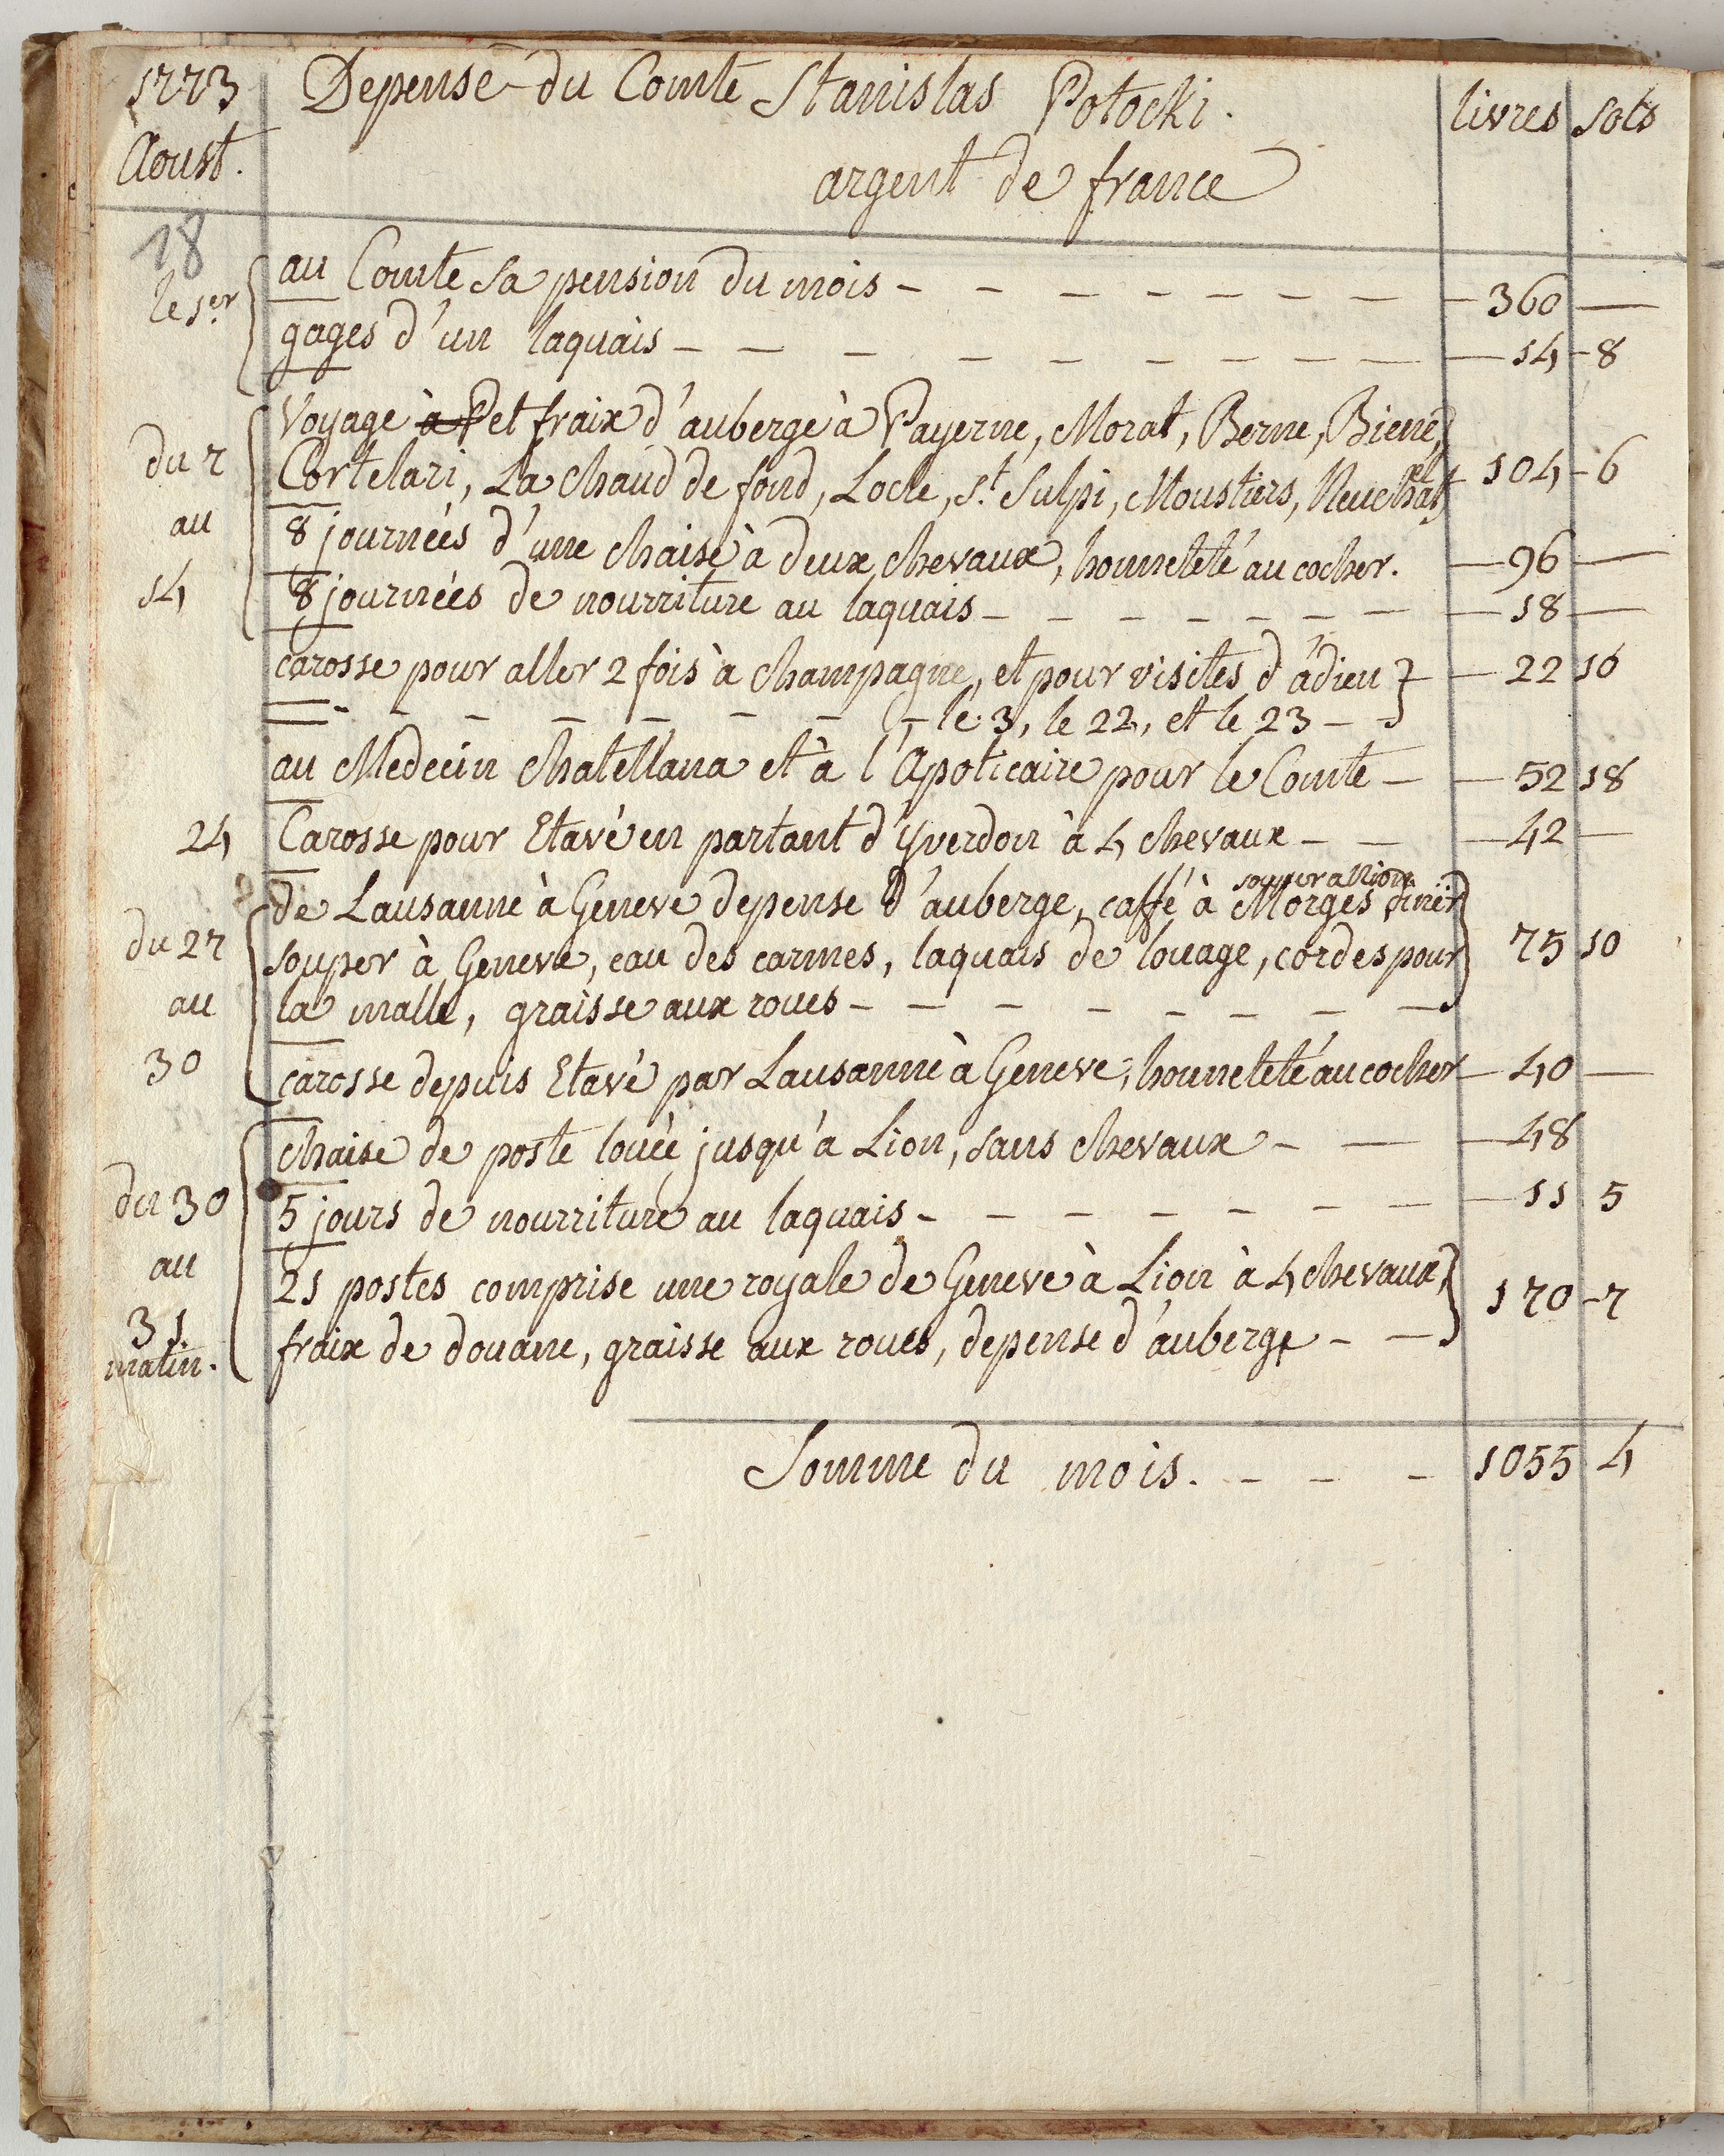 1773 Depense du Comte Stanislas Potocki. livres sols
Aoust. argent de france
18
le 1.er au Comte sa pension du mois - - - - - - - - 360 —
gages d'un laquais - - - - - - - - - 14 - 8
Voyage à P et fraix d'auberge à Payerne, Morat, Berne, Biene,
du 7 Cortelari, La Chaud de fond, Locle, S.t Sulpi, Moustiers, Neuchatel 104 - 6
au 8 journées d'une chaise à deux chevaux, honneteté au cocher. — 96 —
14 8 journées de nourriture au laquais - - - - - - - 18 —
carosse pour aller 2 fois à Champagne, et pour visites d'adieu } — 22 16
- - - - - - - le 3, le 22, et le 23 - -
au Medecin Chatellana et à l'Apoticaire pour le Comte - — 52 18
24 Carosse pour Etavé en partant d'Yverdon à 4 chevaux - - — 42 —
souper a Nion
de Lausanne à Geneve depense d'auberge, caffé à Morges, diner
du 27 souper à Geneve, eau des carmes, laquais de louage, cordes pour 75 10
au la malle, graisse aux roues - - - - - - - -
30 carosse depuis Etavé par Lausanne à Geneve, honneteté au cocher - 40 —
chaise de poste louée jusqu'à Lion, sans chevaux - — — 48
du 30 5 jours de nourriture au laquais - - - - - - - - 11 5
au 21 postes comprise une royale de Geneve à Lion à 4 chevaux, } 170 - 7
31 fraix de douane, graisse aux roues, depense d'auberge - -
matin.
Somme du mois. - - - 1055 4